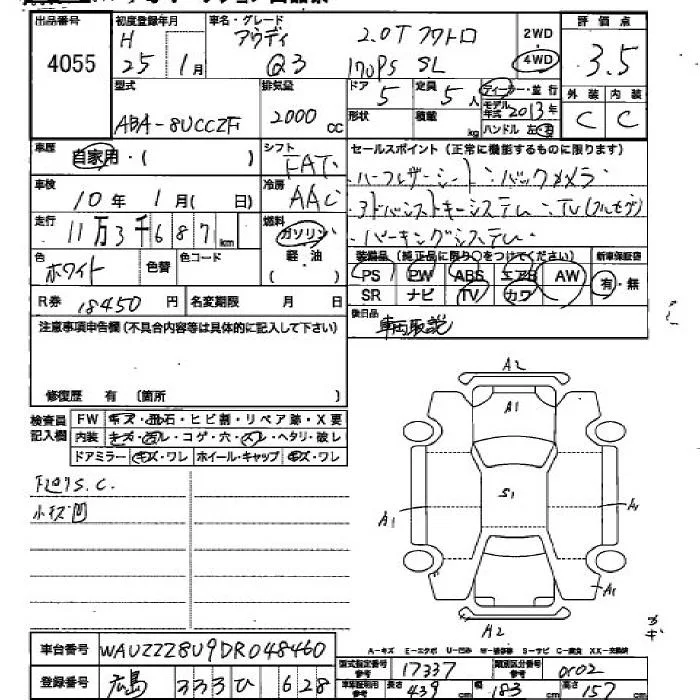 出品番号 初度登録年月 車名・グレード 2WD 評価点
4055 H 25年 1月 アウディ 2.0T クワトロ 4WD 3.5
Q3 170PS SL
型式 排気量 ドア 5 定員 5人 ディーラー・並行 外装 内装
ABA-8UCCZF 2000cc 形状 積載 kg モデル年式 2013年 C C
ハンドル 左・右
車歴 自家用・( ) シフト FAT セールスポイント (正常に機能するものに限ります)
車検 10年 1月( 日) 冷房 AAC ・ハーフレザーシート・バックカメラ
走行 11万3千687km 燃料 ガソリン 軽油 ・アドバンストキーシステム・TV(フルセグ)
・パーキングシステム
色 ホワイト 色替 色コード ( ) 装備品(純正品に限り○をつけてください) 新車保証書
PS PW ABS エアB AW 有・無
R券 18450円 名変期限 月 日 SR ナビ TV カワ
注意事項申告欄(不具合内容等は具体的に記入して下さい) 後日品
車両取説
修復歴 有 〔箇所 〕
検査員記入欄 FW キズ・飛石・ヒビ割・リペア跡・X要
内装 キズ・汚レ・コゲ・穴・スレ・ヘタリ・破レ
ドアミラー キズ・ワレ ホイール・キャップ キズ・ワレ
下廻りS.C.
小キズ凹
A2
A1
S1
A1 A1
A1
A2
A-キズ E-エクボ U-凹み W-補修跡 S-サビ C-腐食 XX-交換済
車台番号 WAUZZZ8U9DR048460
型式指定番号 17337 類別区分番号 0102
登録番号 広島 333 ひ 628
車庫証明用参考 長さ参考 439cm 幅参考 183cm 高さ参考 157cm